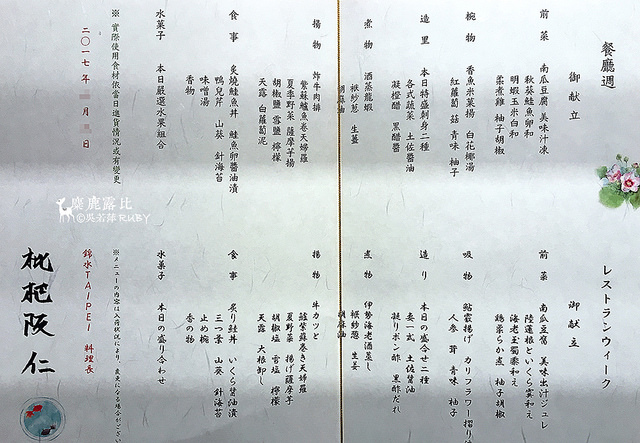 餐廳週
御献立
前菜 南瓜豆腐 美味汁凍
秋葵鮭魚卵和
明蝦玉米白和
柔煮雞 柚子胡椒
椀物 香魚米菓揚 白花椰湯
紅蘿蔔 菇 青味 柚子
造里 本日特盛刺身二種
各式蔬菜 土佐醬油
凝橙醋 黑醋醬
煮物 酒蒸龍蝦
胡麻油
揚物 炸牛肉排
紫蘇鱸魚卷天婦羅
夏季野菜 薩摩芋揚
胡椒鹽 雪鹽 檸檬
天露 白蘿蔔泥
食事 炙燒鮭魚丼 鮭魚卵醬油漬
鴨兒芹 山葵 針海苔
味噌湯
香物
水菓子 本日嚴選水果組合
※實際使用食材依當日進貨情況或有變更
二〇一七年 月 日
麋鹿露比
©吳若萍RUBY
レストランウィーク
御献立
前菜 南瓜豆腐 美味出汁ジュレ
陸蓮根といくら和え
海老玉蜀黍和え
鶏柔らか煮 柚子胡椒
吸物 鮎霰揚げ カリフラワー摺り
人参 茸 青味 柚子
造り 本日の盛合せ二種
妻一式 土佐醤油
凝りポン酢 黒酢だれ
煮物 伊勢海老酒蒸し
胡麻油
揚物 牛カツと
鱸紫蘇巻き天婦羅
夏野菜 揚げ薩摩芋
胡椒塩 雪塩 檸檬
天露 大根卸し
食事 炙り鮭丼 いくら醤油漬
三つ葉 山葵 針海苔
止め椀
香の物
水菓子 本日の盛り合わせ
※メニューの内容は入荷状況により、変更になる場合がござい
錦水TAIPEI 料理長
枇杷阪 仁